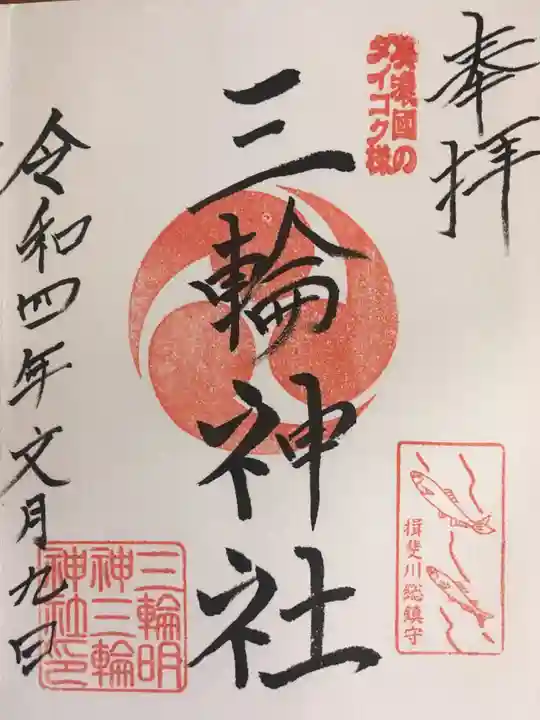 奉拝
美濃國の
ダイコク様
三輪神社
揖斐川総鎮守
令和四年文月九日
三輪明
神三輪
神社印